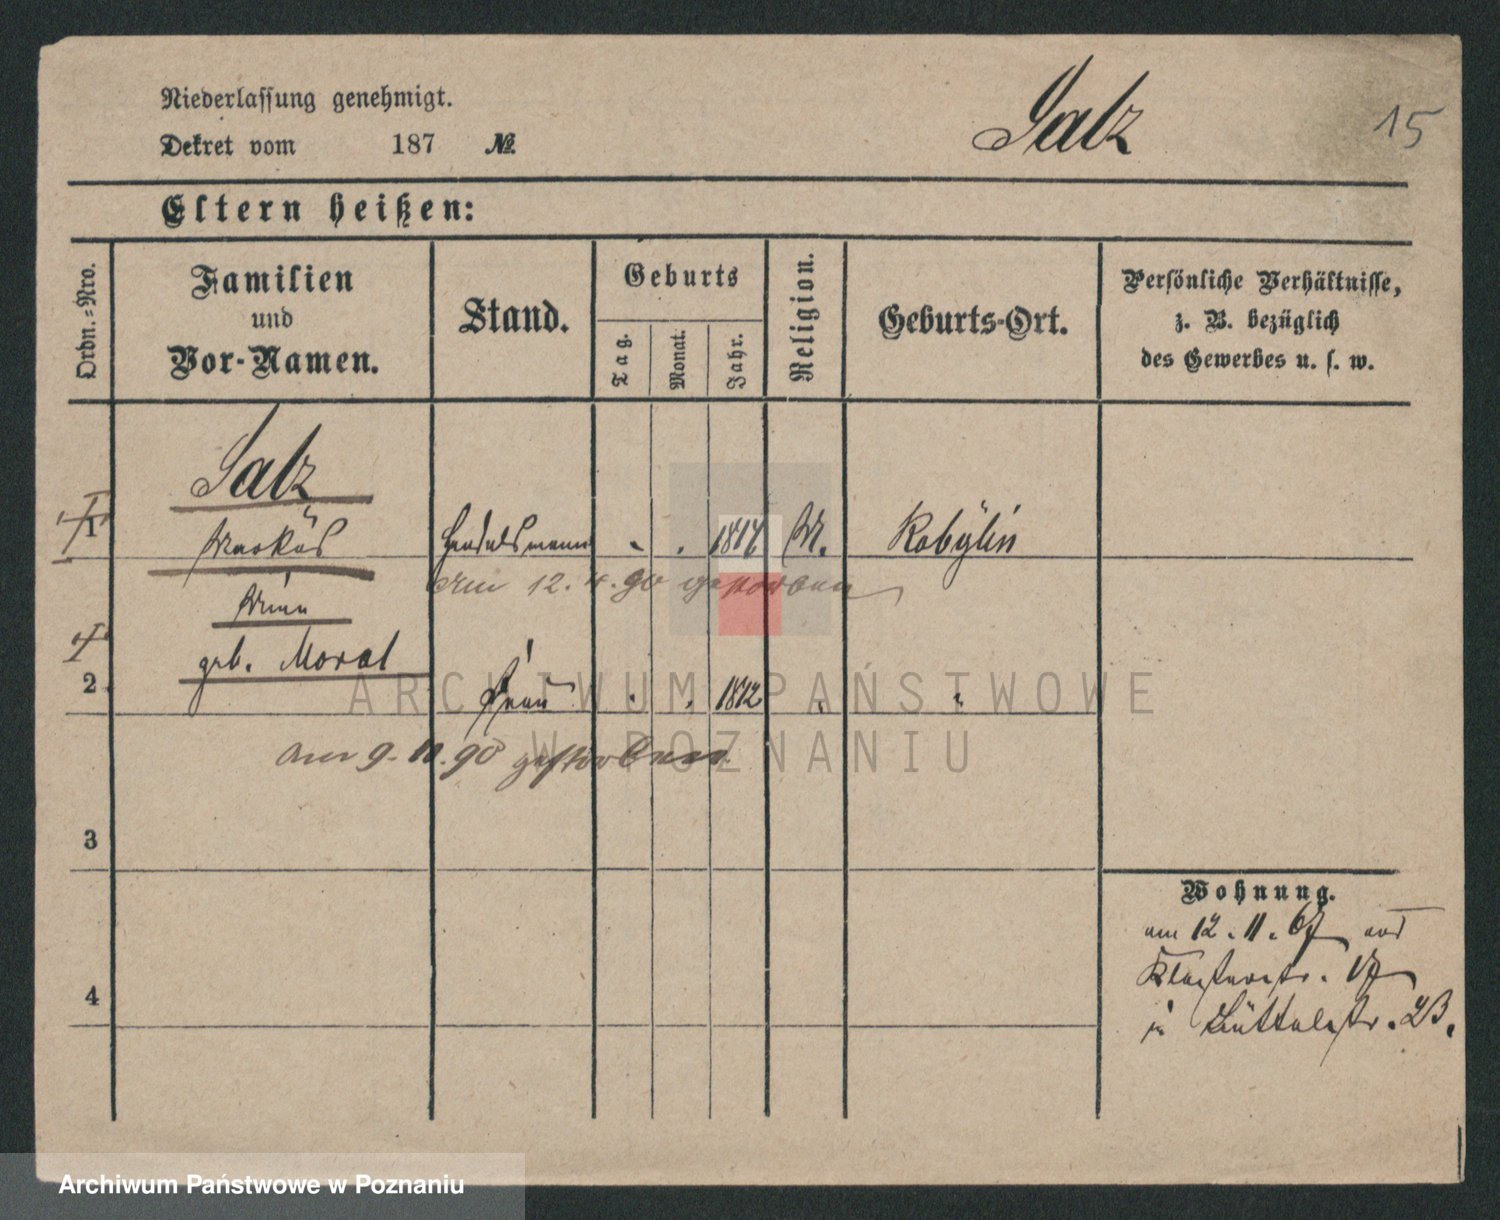 Niederlassung genehmigt.
Dekret vom 187 №.
Salz
15
Eltern heißen:
Ordn.-Nro.
Familien
und
Vor-Namen.
Stand.
Geburts
Tag.
Monat.
Jahr.
Religion.
Geburts-Ort.
Persönliche Verhältnisse,
z. B. bezüglich
des Gewerbes u. s. w.
Salz
1
Markus Handelsmann 1817 M. Kobylin
Am 12. 4. 90 gestorben
geb. Moral
2
Frau 1812
am 9. 11. 90 gestorben
3
4
Wohnung.
am 12. 11. 67 aus
Klosterstr. 17
in Büttelstr. 23.
ARCHIWUM PAŃSTWOWE
W POZNANIU
Archiwum Państwowe w Poznaniu